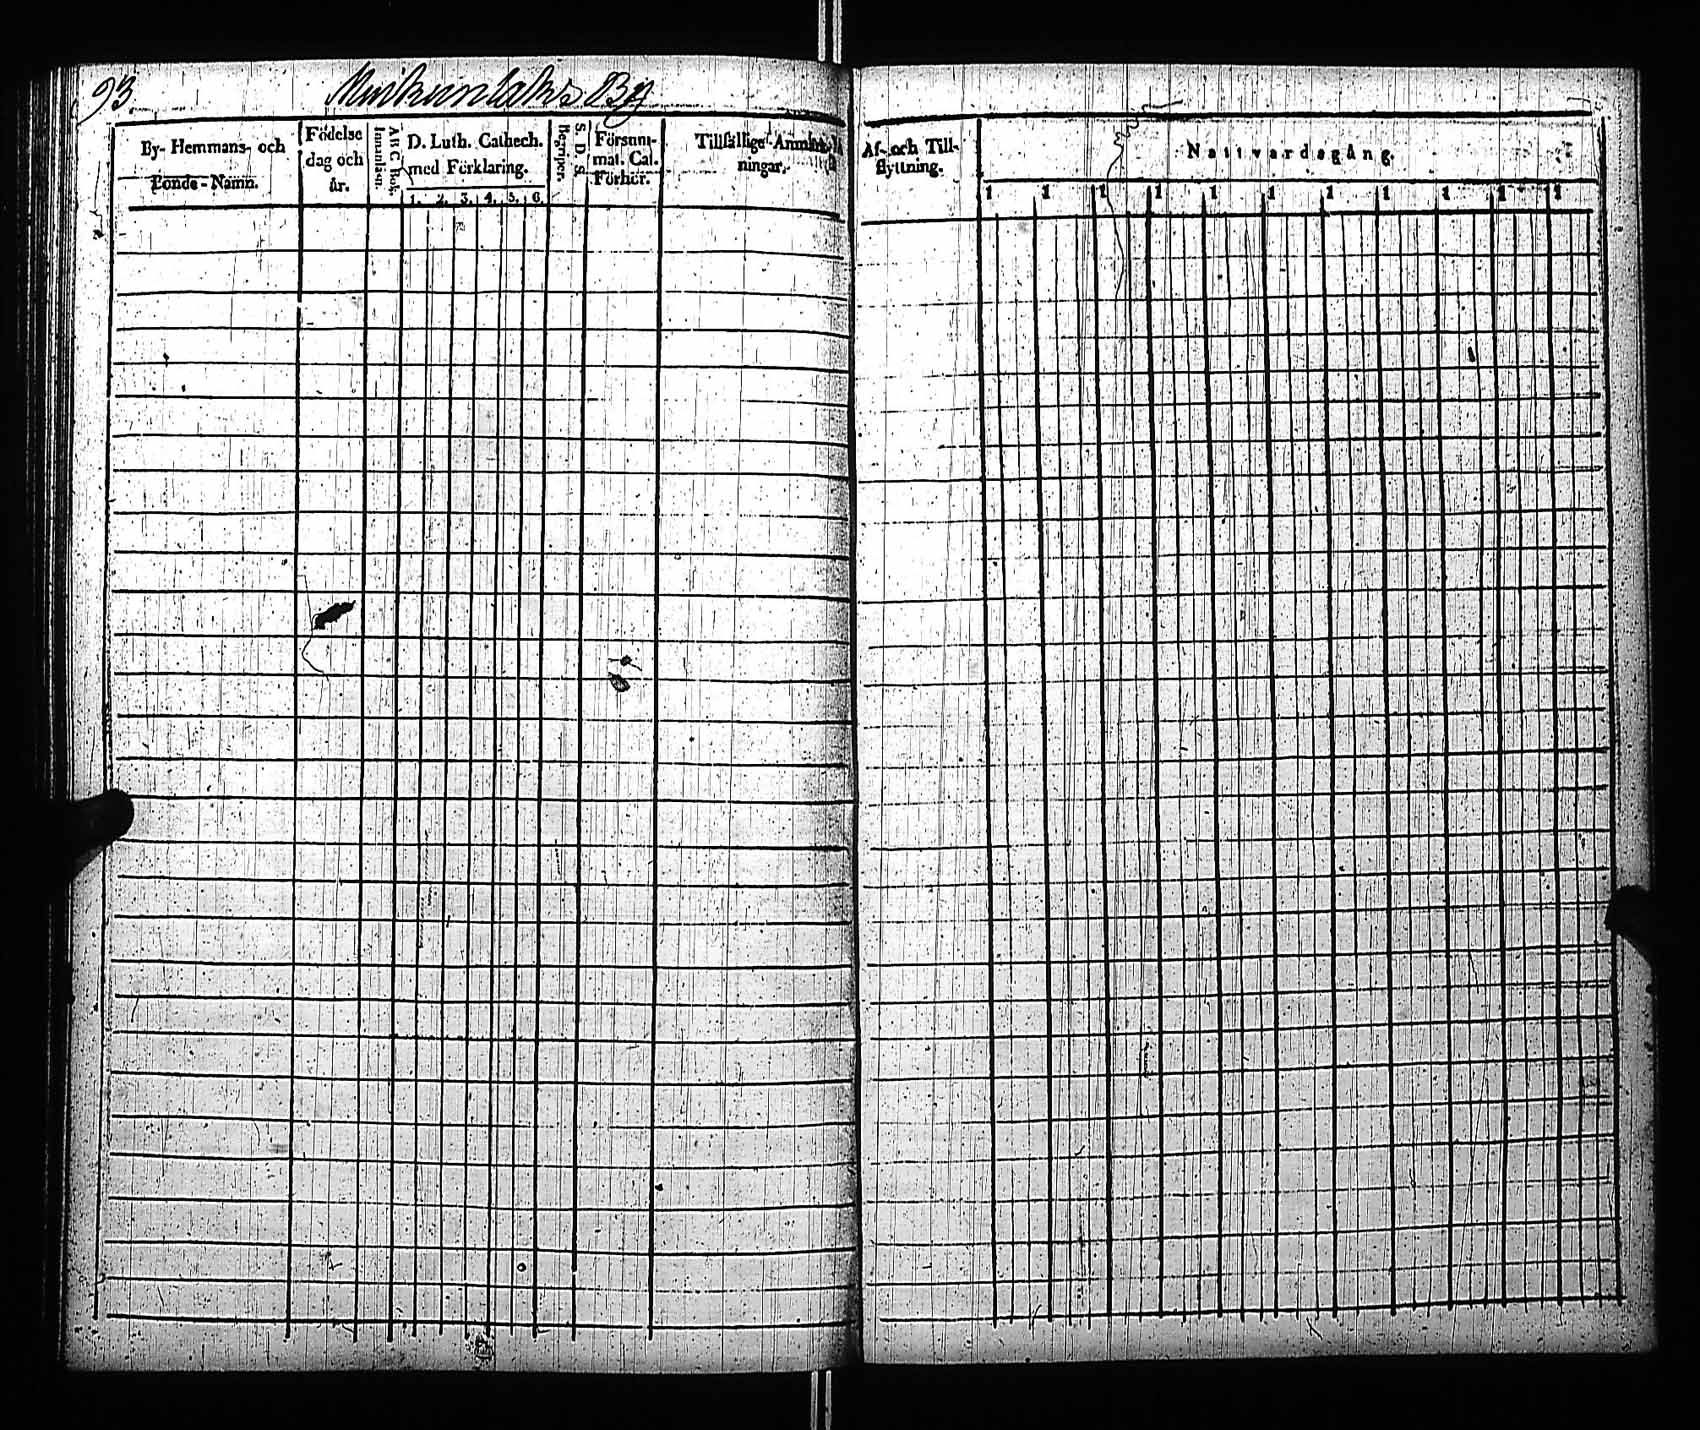 93 By
By- Hemmans- och
Bonde-Namn.
Födelse
dag och
år.
A B C Bok.
Innanläsn.
D. Luth. Cathech.
med Förklaring.
1. 2. 3. 4. 5. 6.
S. D. S.
Begreper.
Försum-
mat. Cat.
Förhör.
Tillfällige Anmärk-
ningar.
Af- och Till-
flyttning.
Nattvardsgång.
1 1 1 1 1 1 1 1 1 1 1